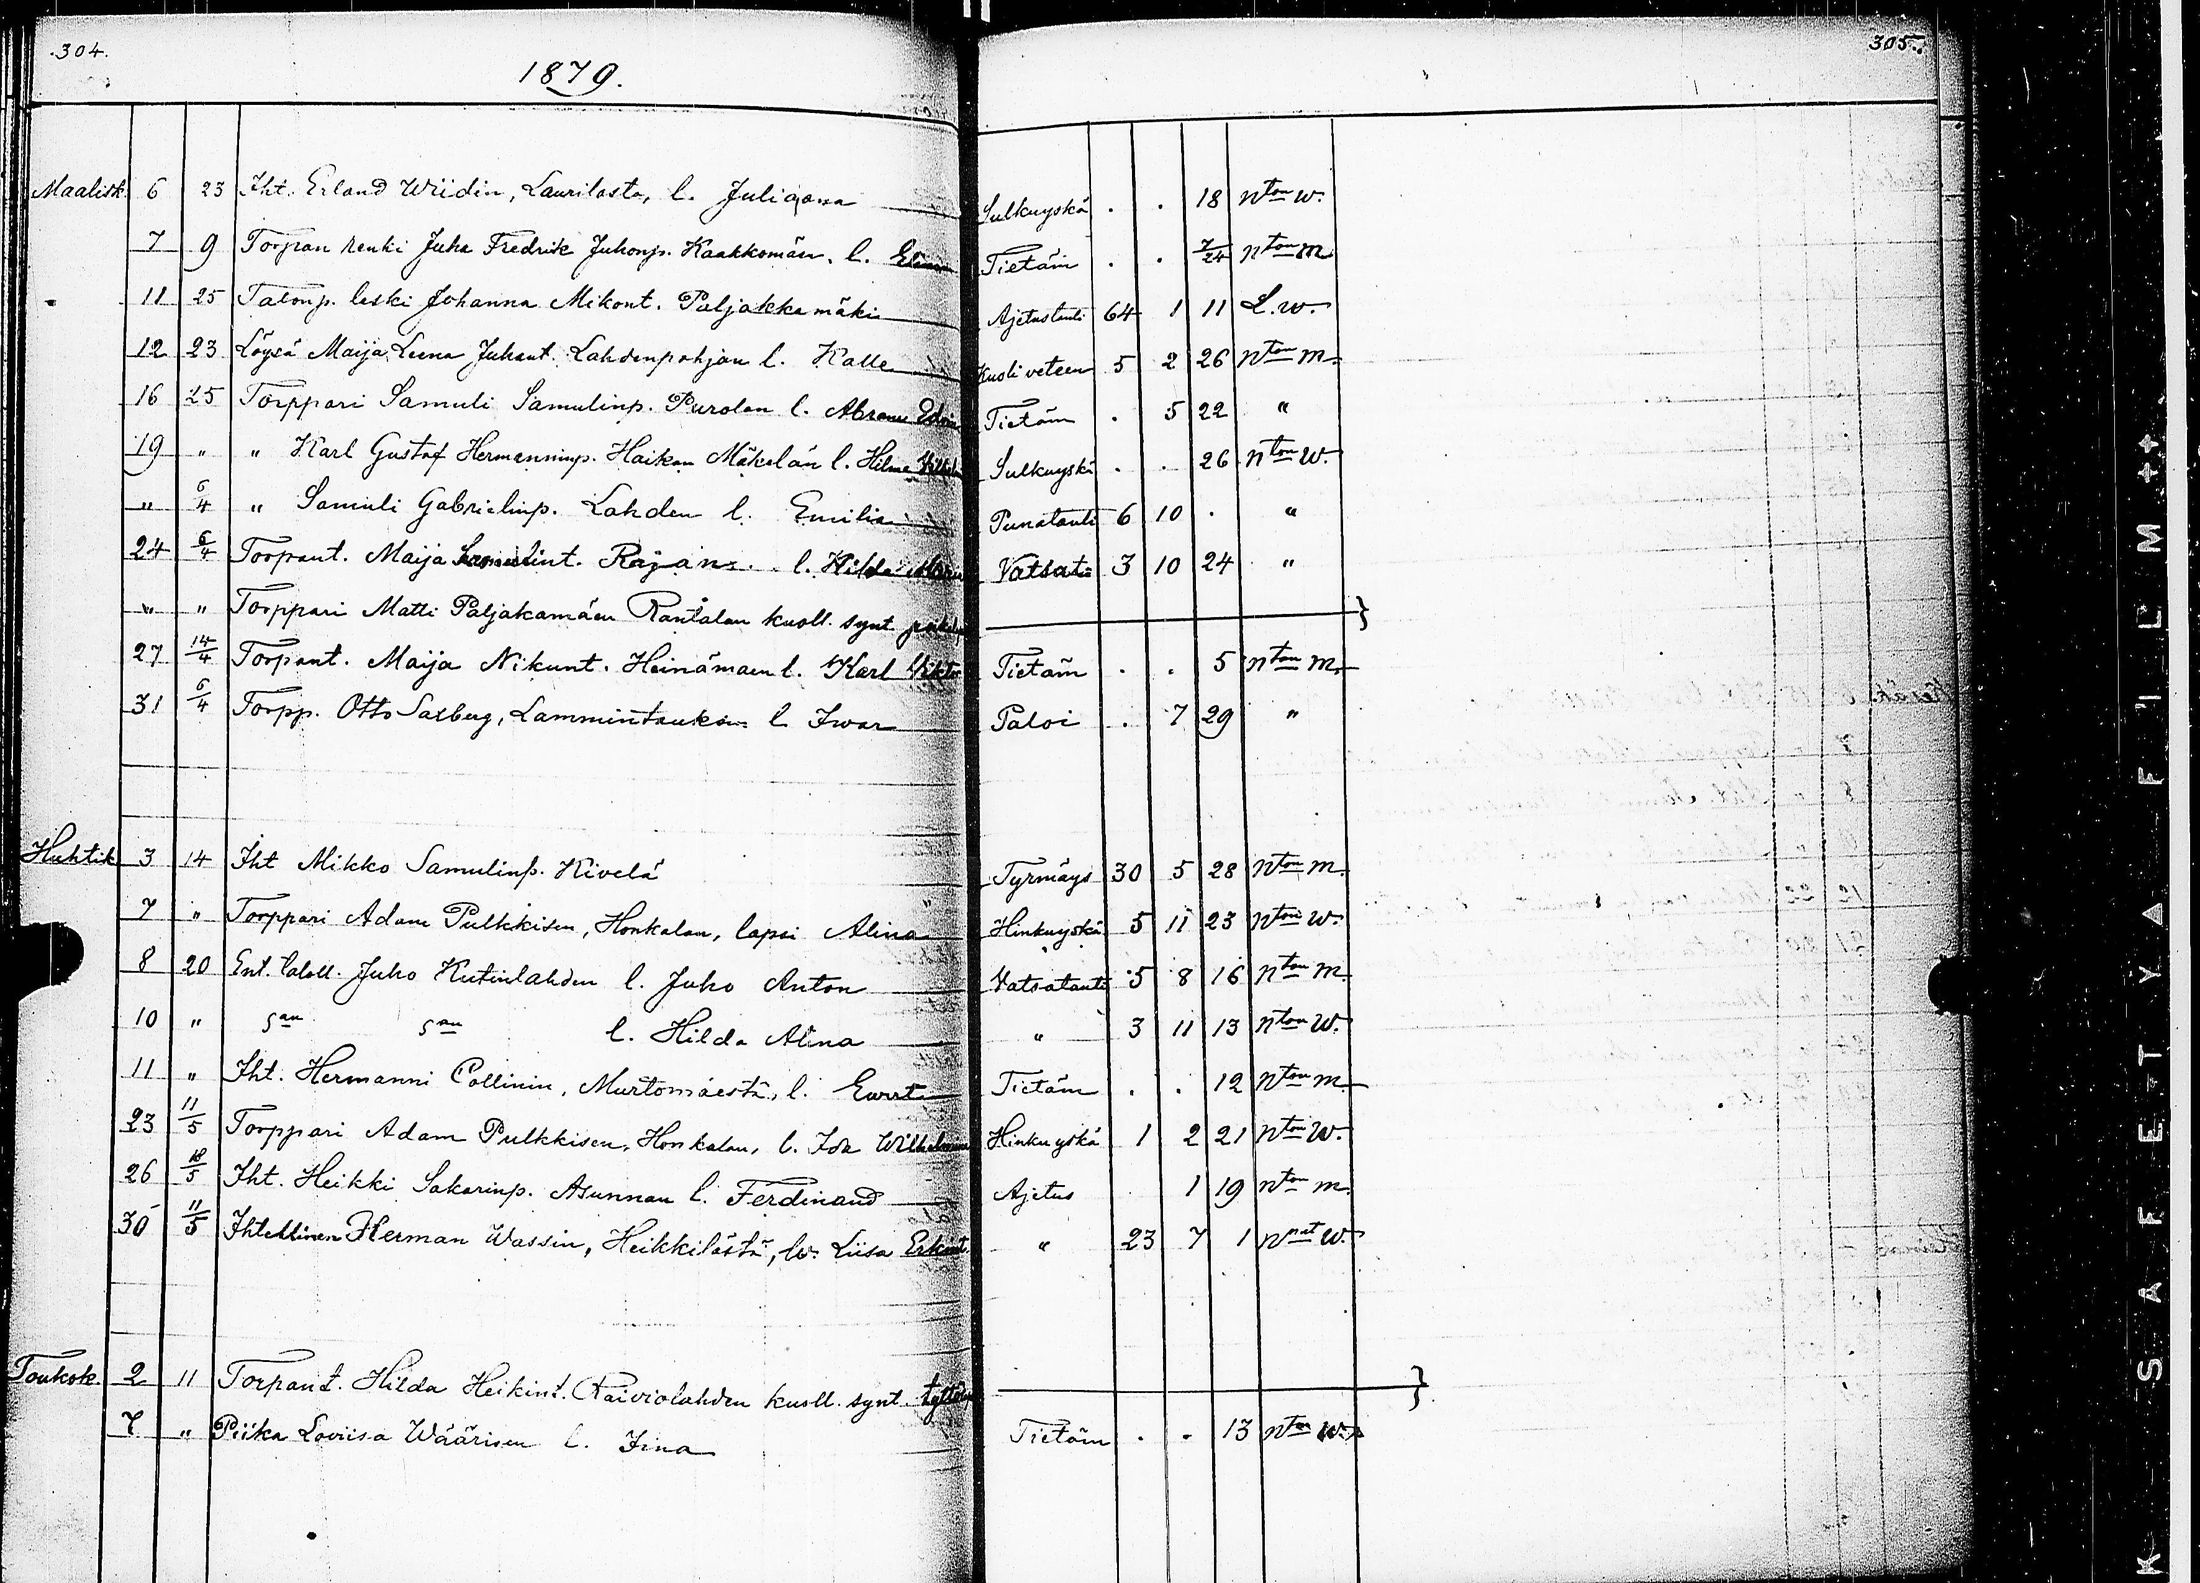 304.
305.
1879.
Maalisk. 6 23 Iht. Erland Wiidin, Laurilasta, l. Juliaana Sulkuyskä . . 18 nton w.
7 9 Torpan renki Juha Fredrik Juhonp. Kaakkomäen. l. Tietäm . . 7/24 nton m
11 25 Talonp. leski Johanna Mikont. Paljakkamäki Ajetustauti 64 1 11 L. w.
12 23 Löysä Maija Leena Juhant. Lahdenpohjan l. Kalle Kuoli veteen 5 2 26 nton m.
16 25 Torppari Samuli Samulinp. Purolan l. Abram Edvin Tietäm . 5 22 "
19 " " Karl Gustaf Hermanninp. Haikan Mäkelän l. Hilma Sulkuyskä . . 26 nton w.
" 6/4 " Samuli Gabrielinp. Lahden l. Emilia Punatauti 6 10 . "
24 6/4 Torpant. Maija Samulint. Rajan l. Hilda Maria Vatsata 3 10 24 "
" " Torppari Matti Paljakamäen Rantalan kuoll. synt.
27 14/4 Torpant. Maija Nikunt. Heinämaen l. Karl Viktor Tietäm . . 5 nton m.
31 6/4 Torpp. Otto Saxberg, Lammintaukan l. Iwar Paloi . 7 29 "
Huhtik 3 14 Iht Mikko Samulinp. Kivelä Tyrmäys 30 5 28 nton m.
7 " Torppari Adam Pulkkisen, Honkalan, lapsi Alina Hinkuyskä 5 11 23 nton w.
8 20 Ent. taloll. Juho Kutinlahden l. Juho Anton Vatsatauti 5 8 16 nton m.
10 " san san l. Hilda Alina " 3 11 13 nton w.
11 " Iht. Hermanni Collinin, Murtomäestä, l. Ewert Tietäm . . 12 nton m.
23 11/5 Torppari Adam Pulkkisen, Honkalan, l. Ida Wilhelmina Hinkuyskä 1 2 21 nton w.
26 18/5 Iht. Heikki Sakarinp. Asunnan l. Ferdinand Ajetus 1 19 nton m.
30 11/5 Ihtellinen Herman Wassin, Heikkilästä, w. Liisa Erkint. " 23 7 1 nnat w.
Toukok. 2 11 Torpant. Hilda Heikint. Raiviolahden kuoll. synt.
7 " Piika Loviisa Wäärisen l. Iina Tietäm . . 13 nton w.
K SAFETY▲FILM